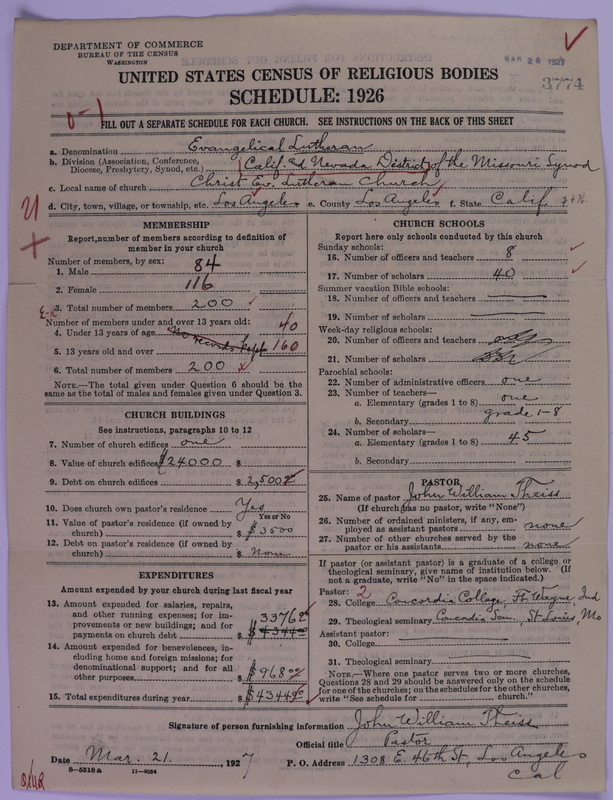 DEPARTMENT OF COMMERCE
BUREAU OF THE CENSUS
WASHINGTON
MAR 28 1927
3774
UNITED STATES CENSUS OF RELIGIOUS BODIES
SCHEDULE: 1926
0-1
FILL OUT A SEPARATE SCHEDULE FOR EACH CHURCH. SEE INSTRUCTIONS ON THE BACK OF THIS SHEET
a. Denomination Evangelical Lutheran
b. Division (Association, Conference, Diocese, Presbytery, Synod, etc.) Calif. and Nevada District of the Missouri Synod
c. Local name of church Christ Ev. Lutheran Church
d. City, town, village, or township, etc. Los Angeles e. County Los Angeles f. State Calif.
MEMBERSHIP
Report number of members according to definition of
member in your church
Number of members, by sex:
1. Male 84
2. Female 116
3. Total number of members 200
Number of members under and over 13 years old:
4. Under 13 years of age No records kept 40
5. 13 years old and over 160
6. Total number of members 200
NOTE.—The total given under Question 6 should be the
same as the total of males and females given under Question 3.
CHURCH BUILDINGS
See instructions, paragraphs 10 to 12
7. Number of church edifices one
8. Value of church edifices $24000 $
9. Debt on church edifices $ 2,500
10. Does church own pastor's residence Yes
Yes or No
11. Value of pastor's residence (if owned by
church) $ 3500
12. Debt on pastor's residence (if owned by
church) $ None
EXPENDITURES
Amount expended by your church during last fiscal year
13. Amount expended for salaries, repairs,
and other running expenses; for im-
provements or new buildings; and for
payments on church debt 3376 $ 4344
14. Amount expended for benevolences, in-
cluding home and foreign missions; for
denominational support; and for all
other purposes $ 968
15. Total expenditures during year $ 4344
CHURCH SCHOOLS
Report here only schools conducted by this church
Sunday schools:
16. Number of officers and teachers 8
17. Number of scholars 40
Summer vacation Bible schools:
18. Number of officers and teachers
19. Number of scholars
Week-day religious schools:
20. Number of officers and teachers
21. Number of scholars
Parochial schools:
22. Number of administrative officers one
23. Number of teachers—
a. Elementary (grades 1 to 8) one
grade 1-8
b. Secondary
24. Number of scholars—
a. Elementary (grades 1 to 8) 45
b. Secondary
PASTOR
25. Name of pastor John William Theiss
(If church has no pastor, write "None")
26. Number of ordained ministers, if any, em-
ployed as assistant pastors none
27. Number of other churches served by the
pastor or his assistants none
If pastor (or assistant pastor) is a graduate of a college or
theological seminary, give name of institution below. (If
not a graduate, write "No" in the space indicated.)
Pastor: 2
28. College Concordia College, Ft. Wayne, Ind
29. Theological seminary Concordia Sem. St Louis, Mo
Assistant pastor:
30. College
31. Theological seminary
NOTE.—Where one pastor serves two or more churches,
Questions 28 and 29 should be answered only on the schedule
for one of the churches; on the schedules for the other churches,
write "See schedule for church."
Signature of person furnishing information John William Theiss
Official title Pastor
Date Mar. 21, 1927 P. O. Address 1308 E. 46th St, Los Angeles
Cal
8—5518 a 11—9054